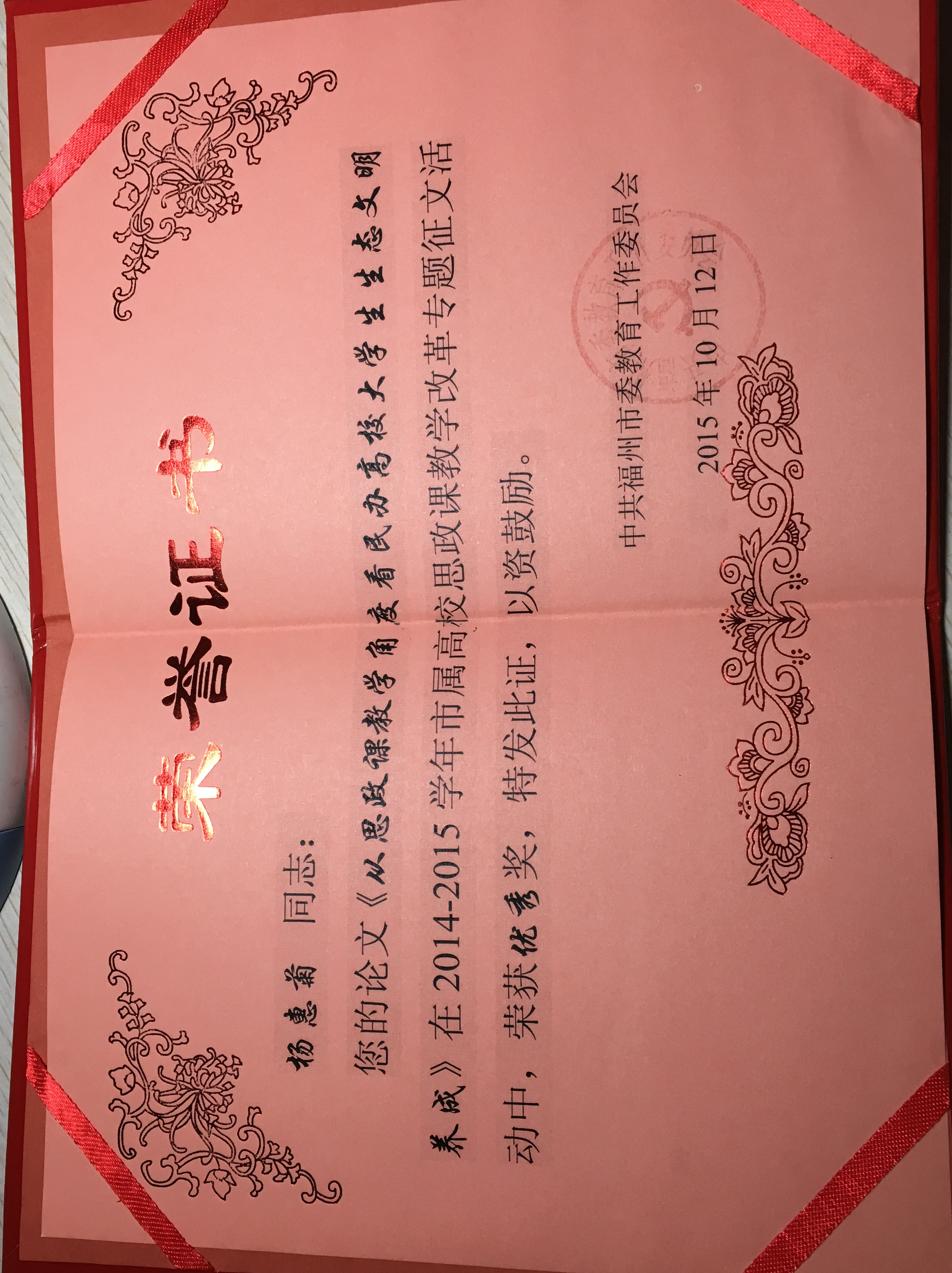 荣誉证书
杨惠菊 同志：
您的论文《从思政课教学角度看民办高校大学生生态文明
养成》在 2014-2015 学年市属高校思政课教学改革专题征文活
动中，荣获优秀奖，特发此证，以资鼓励。
中共福州市委教育工作委员会
2015 年 10 月 12 日